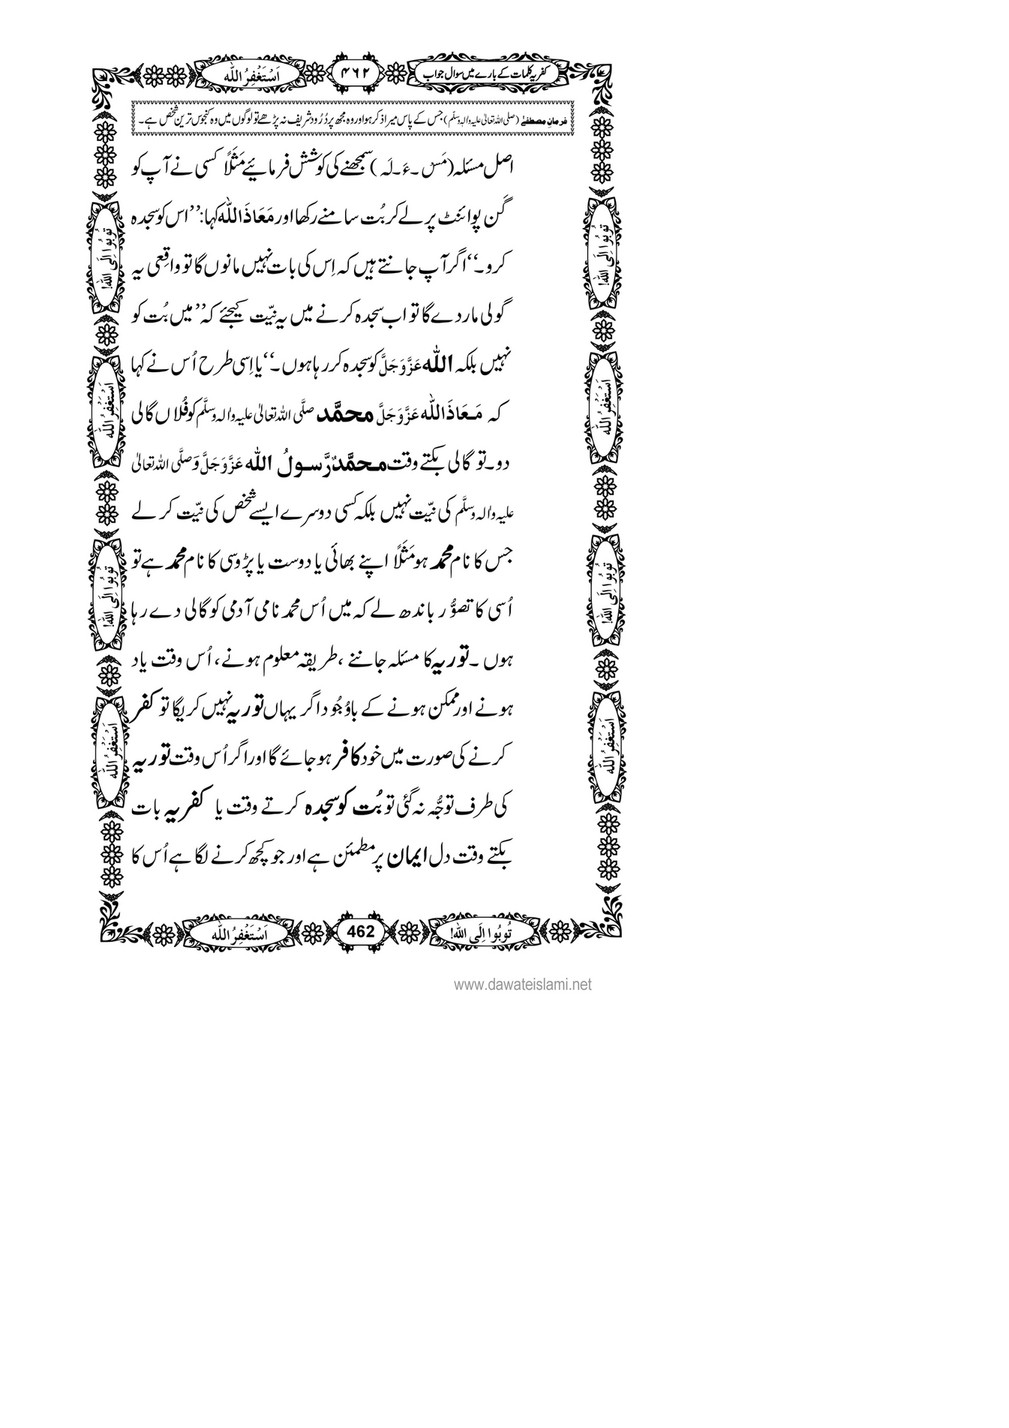 کفریہ کلمات کے بارے میں سوال جواب
۴۶۲
اَسْتَغْفِرُ اللہ
فرمانِ مصطفٰے (صلی اللہ تعالیٰ علیہ والہ وسلم) جس کے پاس میرا ذکر ہو اور وہ مجھ پر دُرُود شریف نہ پڑھے تو لوگوں میں وہ کنجوس ترین شخص ہے۔
اصل مسئلہ (مَسْ۔ءَ۔لَہ) سمجھنے کی کوشش فرمائیے مَثَلاً کسی نے آپ کو
گن پوائنٹ پر لے کر بُت سامنے رکھا اور مَعَاذَ اللہ کہا: ’’اس کو سجدہ
کرو۔‘‘ اگر آپ جانتے ہیں کہ اِس کی بات نہیں مانوں گا تو واقعی یہ
گولی مار دے گا تو اب سجدہ کرنے میں یہ نِیّت کیجئے کہ ’’میں بُت کو
نہیں بلکہ اللہ عَزَّوَجَلَّ کو سجدہ کر رہا ہوں۔‘‘ یا اِسی طرح اُس نے کہا
کہ مَعَاذَ اللہ عَزَّوَجَلَّ محمَّد صلَّی اللہ تعالیٰ علیہ والہ وسلَّم کو فُلاں گالی
دو۔ تو گالی بکتے وقت محمَّدٌ رَّسولُ اللہ عَزَّوَجَلَّ وَ صلَّی اللہ تعالیٰ
علیہ والہ وسلَّم کی نِیّت نہیں بلکہ کسی دوسرے ایسے شخص کی نِیّت کر لے
جس کا نام محمد ہو مَثَلاً اپنے بھائی یا دوست یا پڑوسی کا نام محمد ہے تو
اُسی کا تصوُّر باندھ لے کہ میں اُس محمد نامی آدمی کو گالی دے رہا
ہوں۔ توریہ کا مسئلہ جاننے ، طریقہ معلوم ہونے، اُس وقت یاد
ہونے اور ممکن ہونے کے باوُجُود اگر یہاں توریہ نہیں کریگا تو کفر
کرنے کی صورت میں خود کافر ہو جائے گا اور اگر اُس وقت توریہ
کی طرف توجُّہ نہ گئی تو بُت کو سجدہ کرتے وقت یا کفریہ بات
بکتے وقت دل ایمان پر مطمئن ہے اور جو کچھ کرنے لگا ہے اُس کا
تُوبُوا اِلَی اللہ!
اَسْتَغْفِرُ اللہ
تُوبُوا اِلَی اللہ!
اَسْتَغْفِرُ اللہ
تُوبُوا اِلَی اللہ!
اَسْتَغْفِرُ اللہ
تُوبُوا اِلَی اللہ!
اَسْتَغْفِرُ اللہ
تُوبُوا اِلَی اللہ!
462
اَسْتَغْفِرُ اللہ
www.dawateislami.net